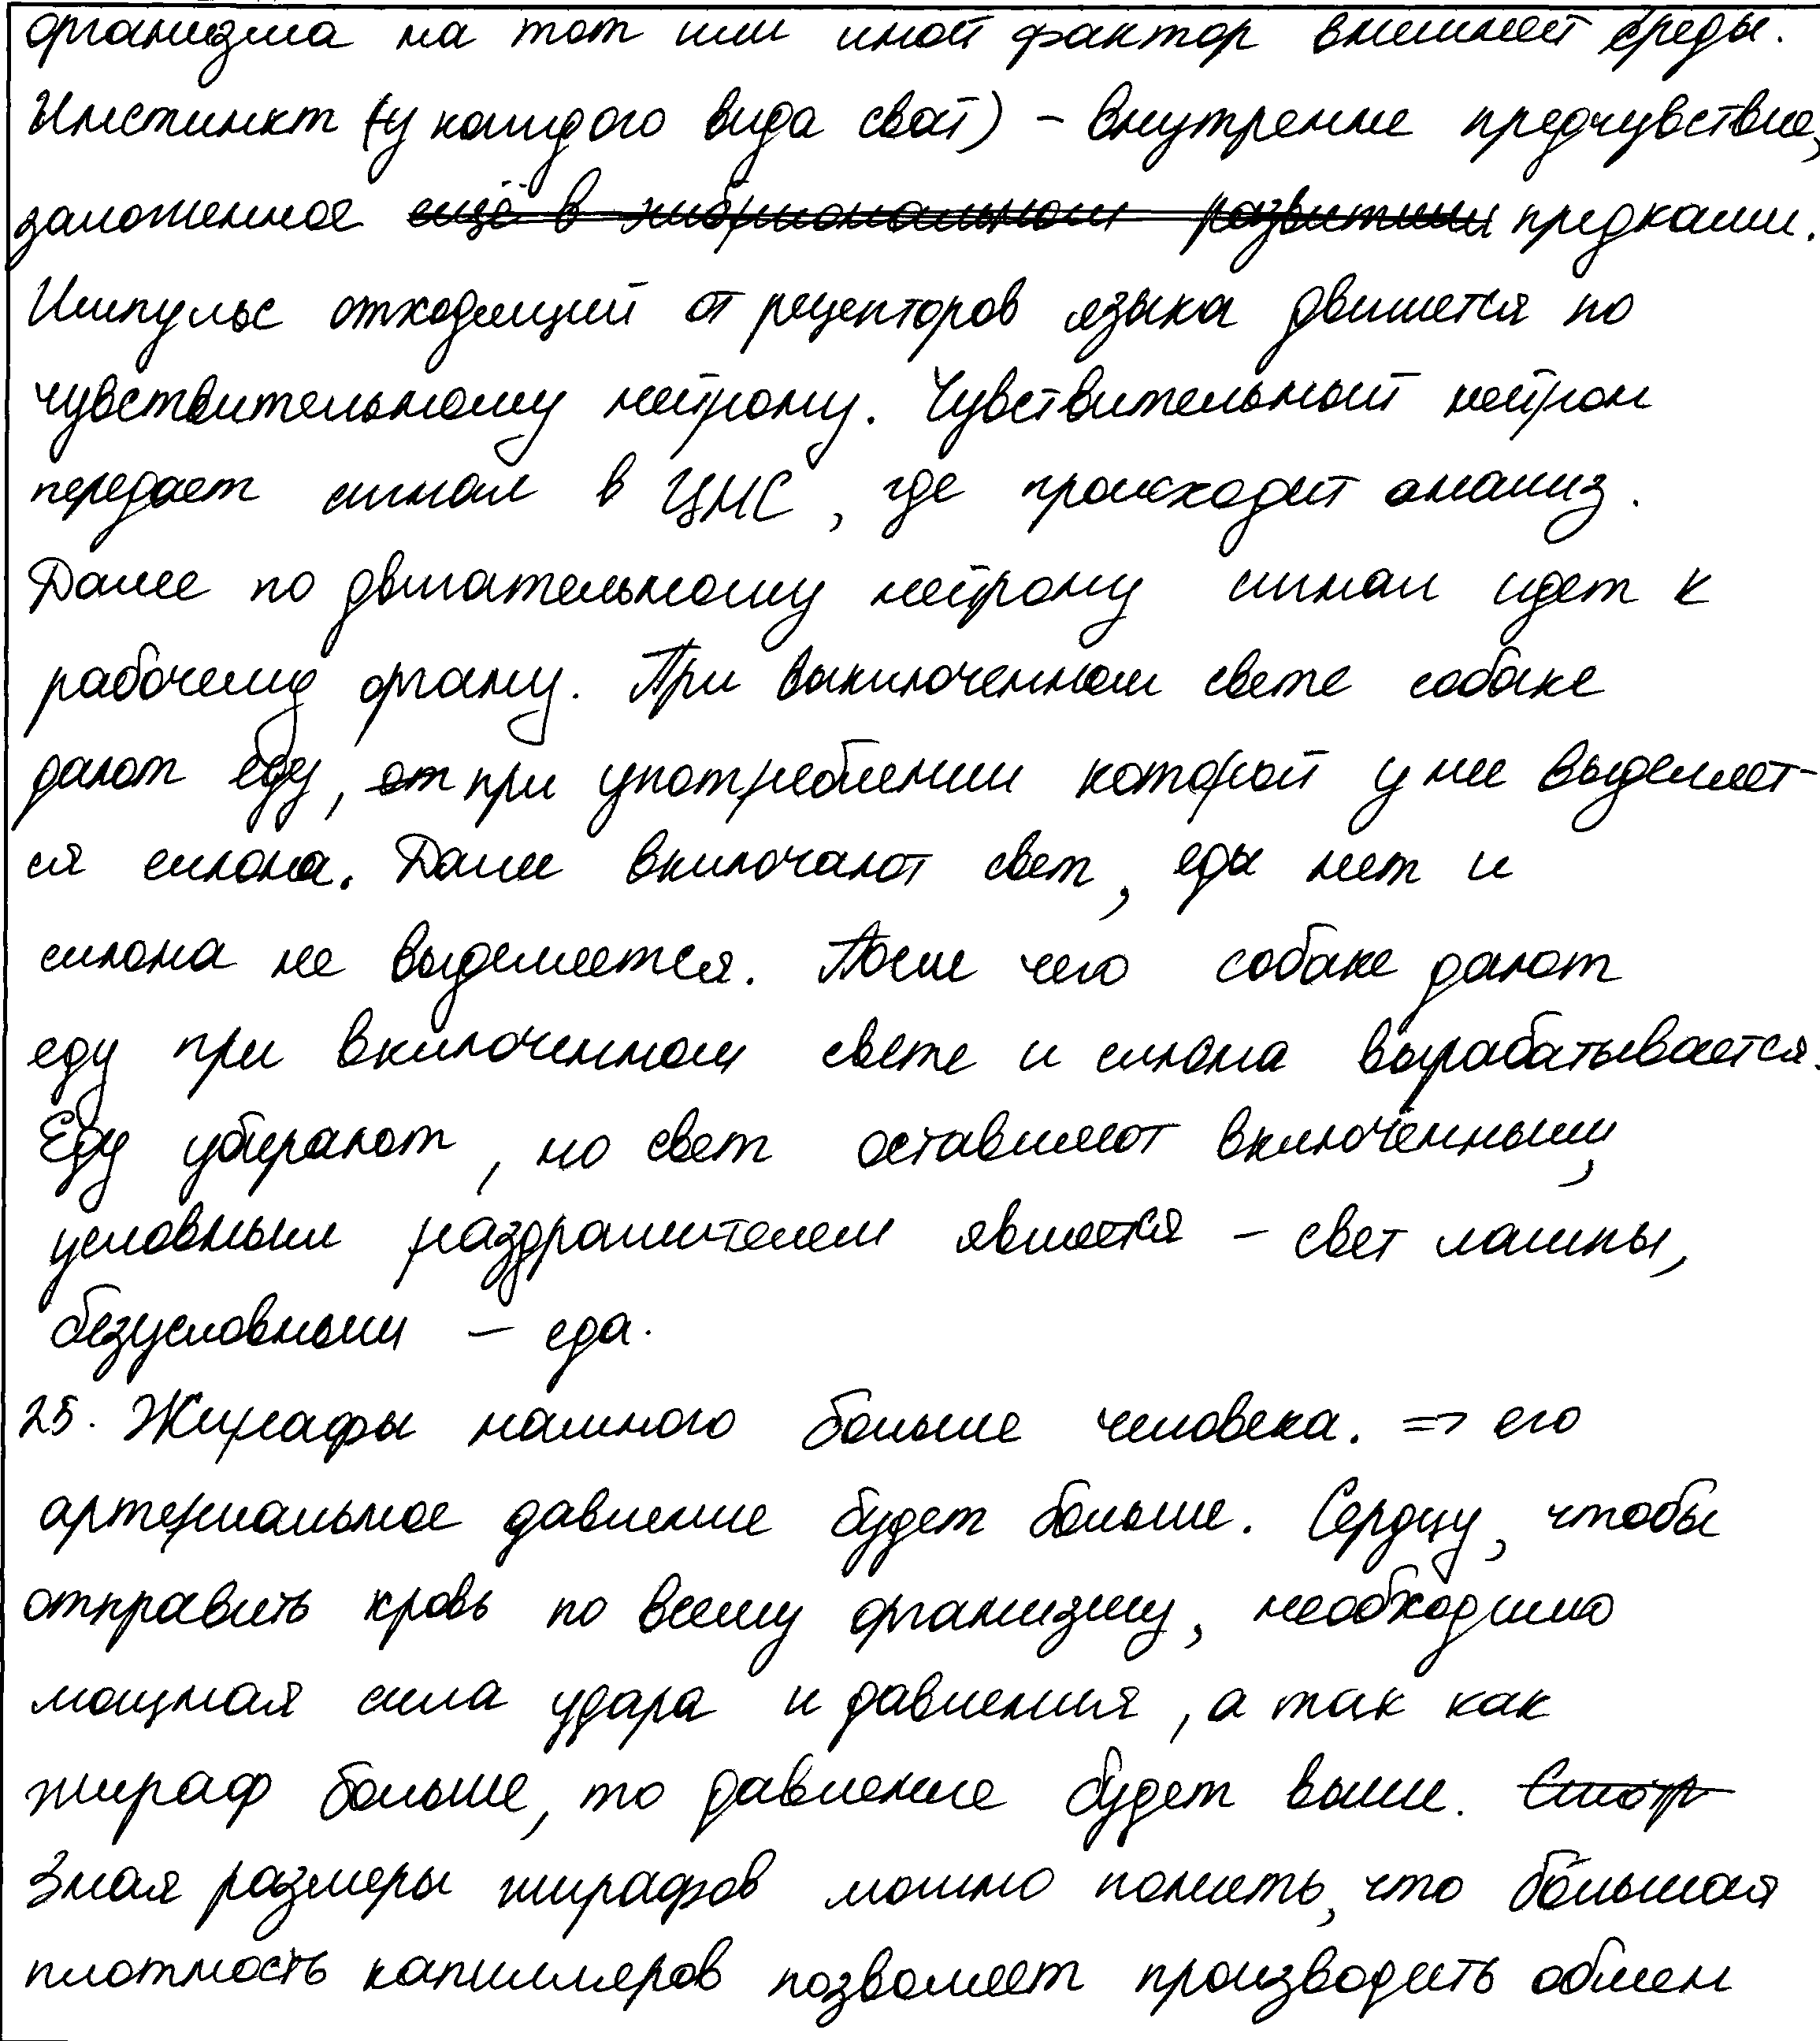 организма на тот или иной фактор внешней среды.
Инстинкт (у каждого вида свой) – внутренние предчувствие,
заложенное ещё в эмбриональном развитии предками.
Импульс отходящий от рецепторов языка движется по
чувствительному нейрону. Чувствительный нейрон
передает сигнал в ЦНС, где происходит анализ.
Далее по двигательному нейрону сигнал идет к
рабочему органу. При выключенном свете собаке
дают еду, от при употреблении которой у нее выделяет-
ся слюна. Далее включают свет, еды нет и
слюна не выделяется. После чего собаке дают
еду при включенном свете и слюна вырабатывается.
Еду убирают, но свет оставляют включённым,
условным раздражителем является – свет лампы,
безусловным – еда.
25. Жирафы намного больше человека. => его
артериальное давление будет больше. Сердцу, чтобы
отправить кровь по всему организму, необходимо
мощная сила удара и давления, а так как
жираф больше, то давление будет выше. Смотр
Зная размеры жирафов можно понять, что бо́льшая
плотность капилляров позволяет производить обмен